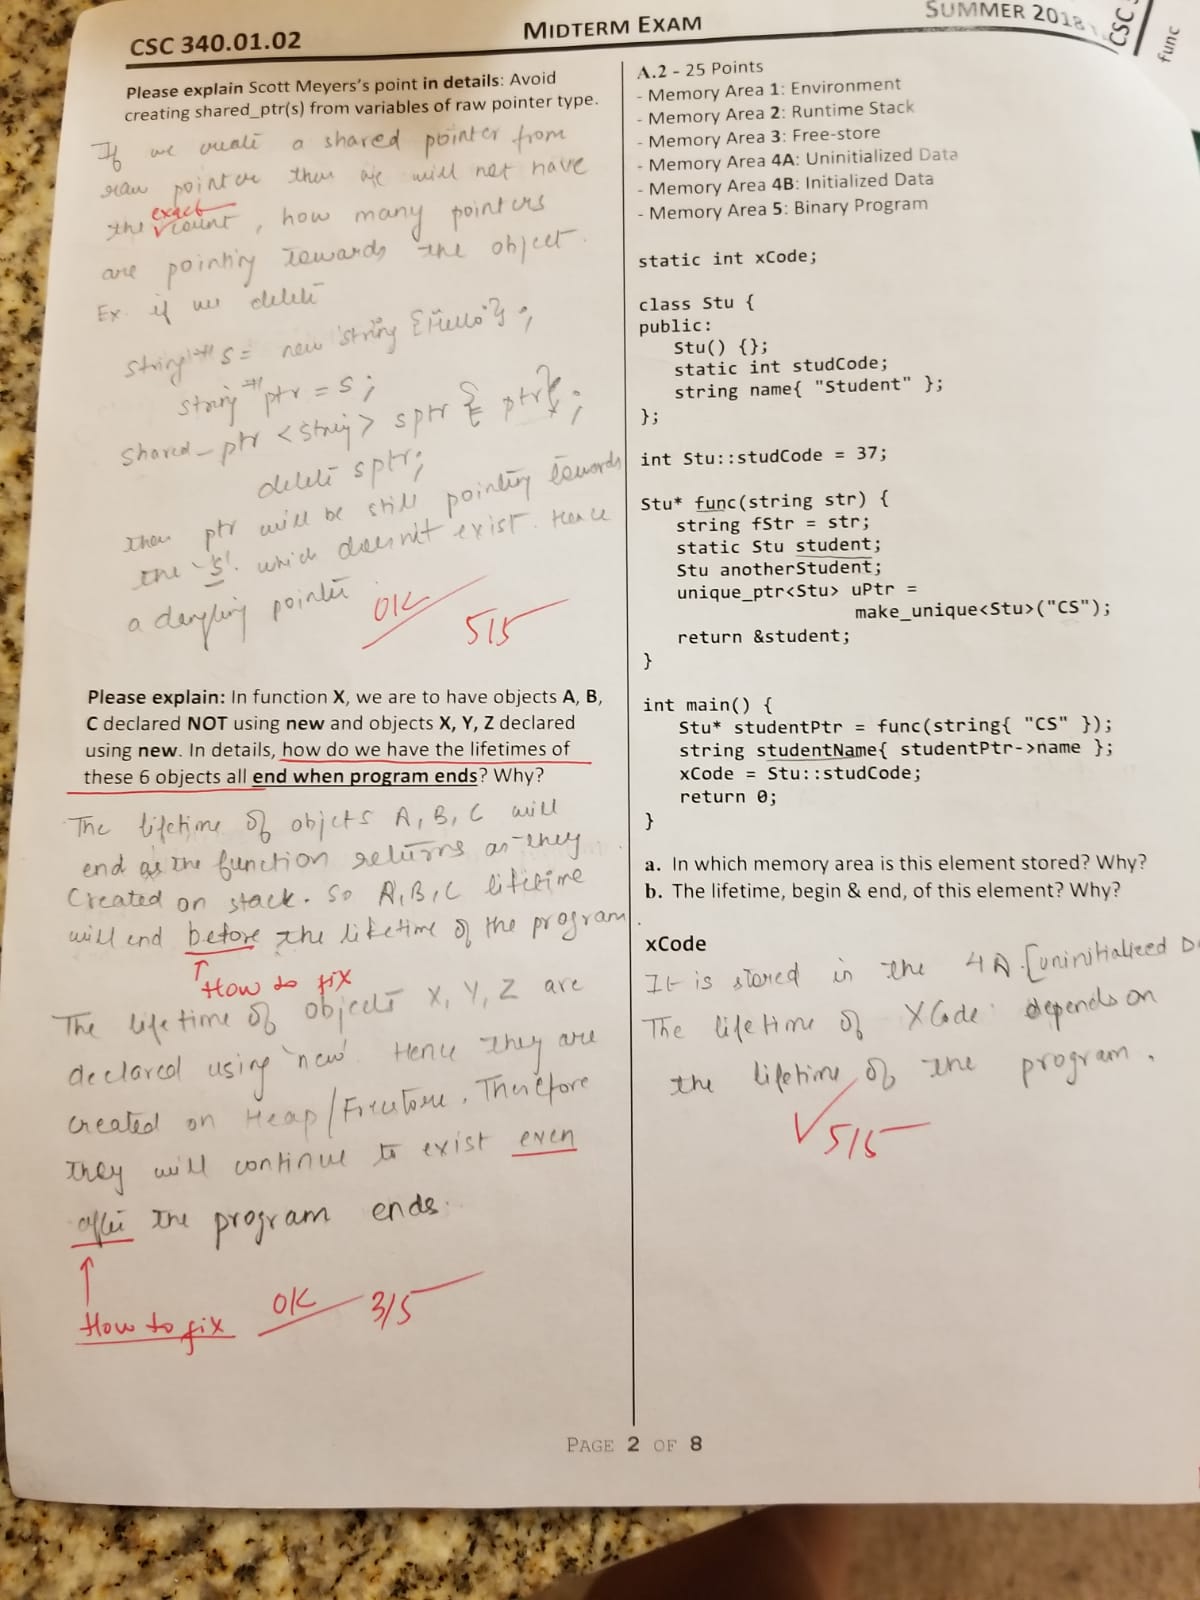 CSC 340.01.02
MIDTERM EXAM
SUMMER 2018
CSC
func
Please explain Scott Meyers's point in details: Avoid
creating shared_ptr(s) from variables of raw pointer type.
If we create a shared pointer from
raw pointer then we will not have
exact
the count, how many pointers
are pointing towards the object.
Ex. if we delete
string* s = new string {"Hello"};
string* ptr = s;
shared_ptr <string> sptr { ptr};
delete sptr;
then ptr will be still pointing towards
the 's' which doesn't exist. Hence
a dangling pointer
OK
5/5
Please explain: In function X, we are to have objects A, B,
C declared NOT using new and objects X, Y, Z declared
using new. In details, how do we have the lifetimes of
these 6 objects all end when program ends? Why?
The lifetime of objcts A, B, C will
end as the function returns as they
Created on stack. So A,B,C lifetime
will end before the lifetime of the program.
How to fix
The lifetime of objects X, Y, Z are
declared using 'new'. Hence they are
created on Heap/Freestore. Therefore
they will continue to exist even
after the program ends.
How to fix
OK
3/5
A.2 - 25 Points
- Memory Area 1: Environment
- Memory Area 2: Runtime Stack
- Memory Area 3: Free-store
- Memory Area 4A: Uninitialized Data
- Memory Area 4B: Initialized Data
- Memory Area 5: Binary Program
static int xCode;
class Stu {
public:
Stu() {};
static int studCode;
string name{ "Student" };
};
int Stu::studCode = 37;
Stu* func(string str) {
string fStr = str;
static Stu student;
Stu anotherStudent;
unique_ptr<Stu> uPtr =
make_unique<Stu>("CS");
return &student;
}
int main() {
Stu* studentPtr = func(string{ "CS" });
string studentName{ studentPtr->name };
xCode = Stu::studCode;
return 0;
}
a. In which memory area is this element stored? Why?
b. The lifetime, begin & end, of this element? Why?
xCode
It is stored in the 4A.[uninitialized D
The lifetime of XCode depends on
the lifetime of the program.
5/5
PAGE 2 OF 8